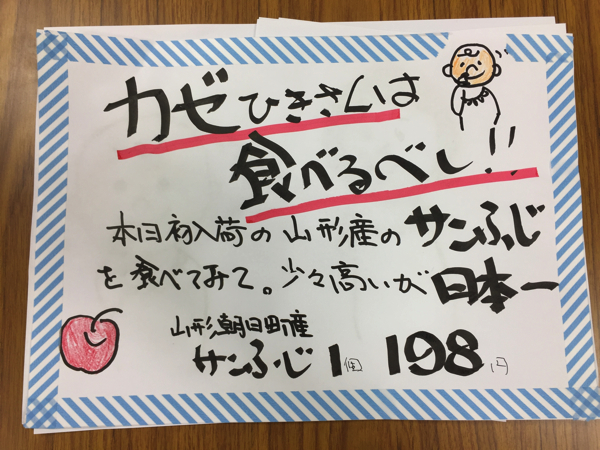 カゼひきさんは
食べるべし!!
本日初入荷の山形産のサンふじ
を食べてみて。少々高いが日本一
山形朝日町産
サンふじ1個 198円